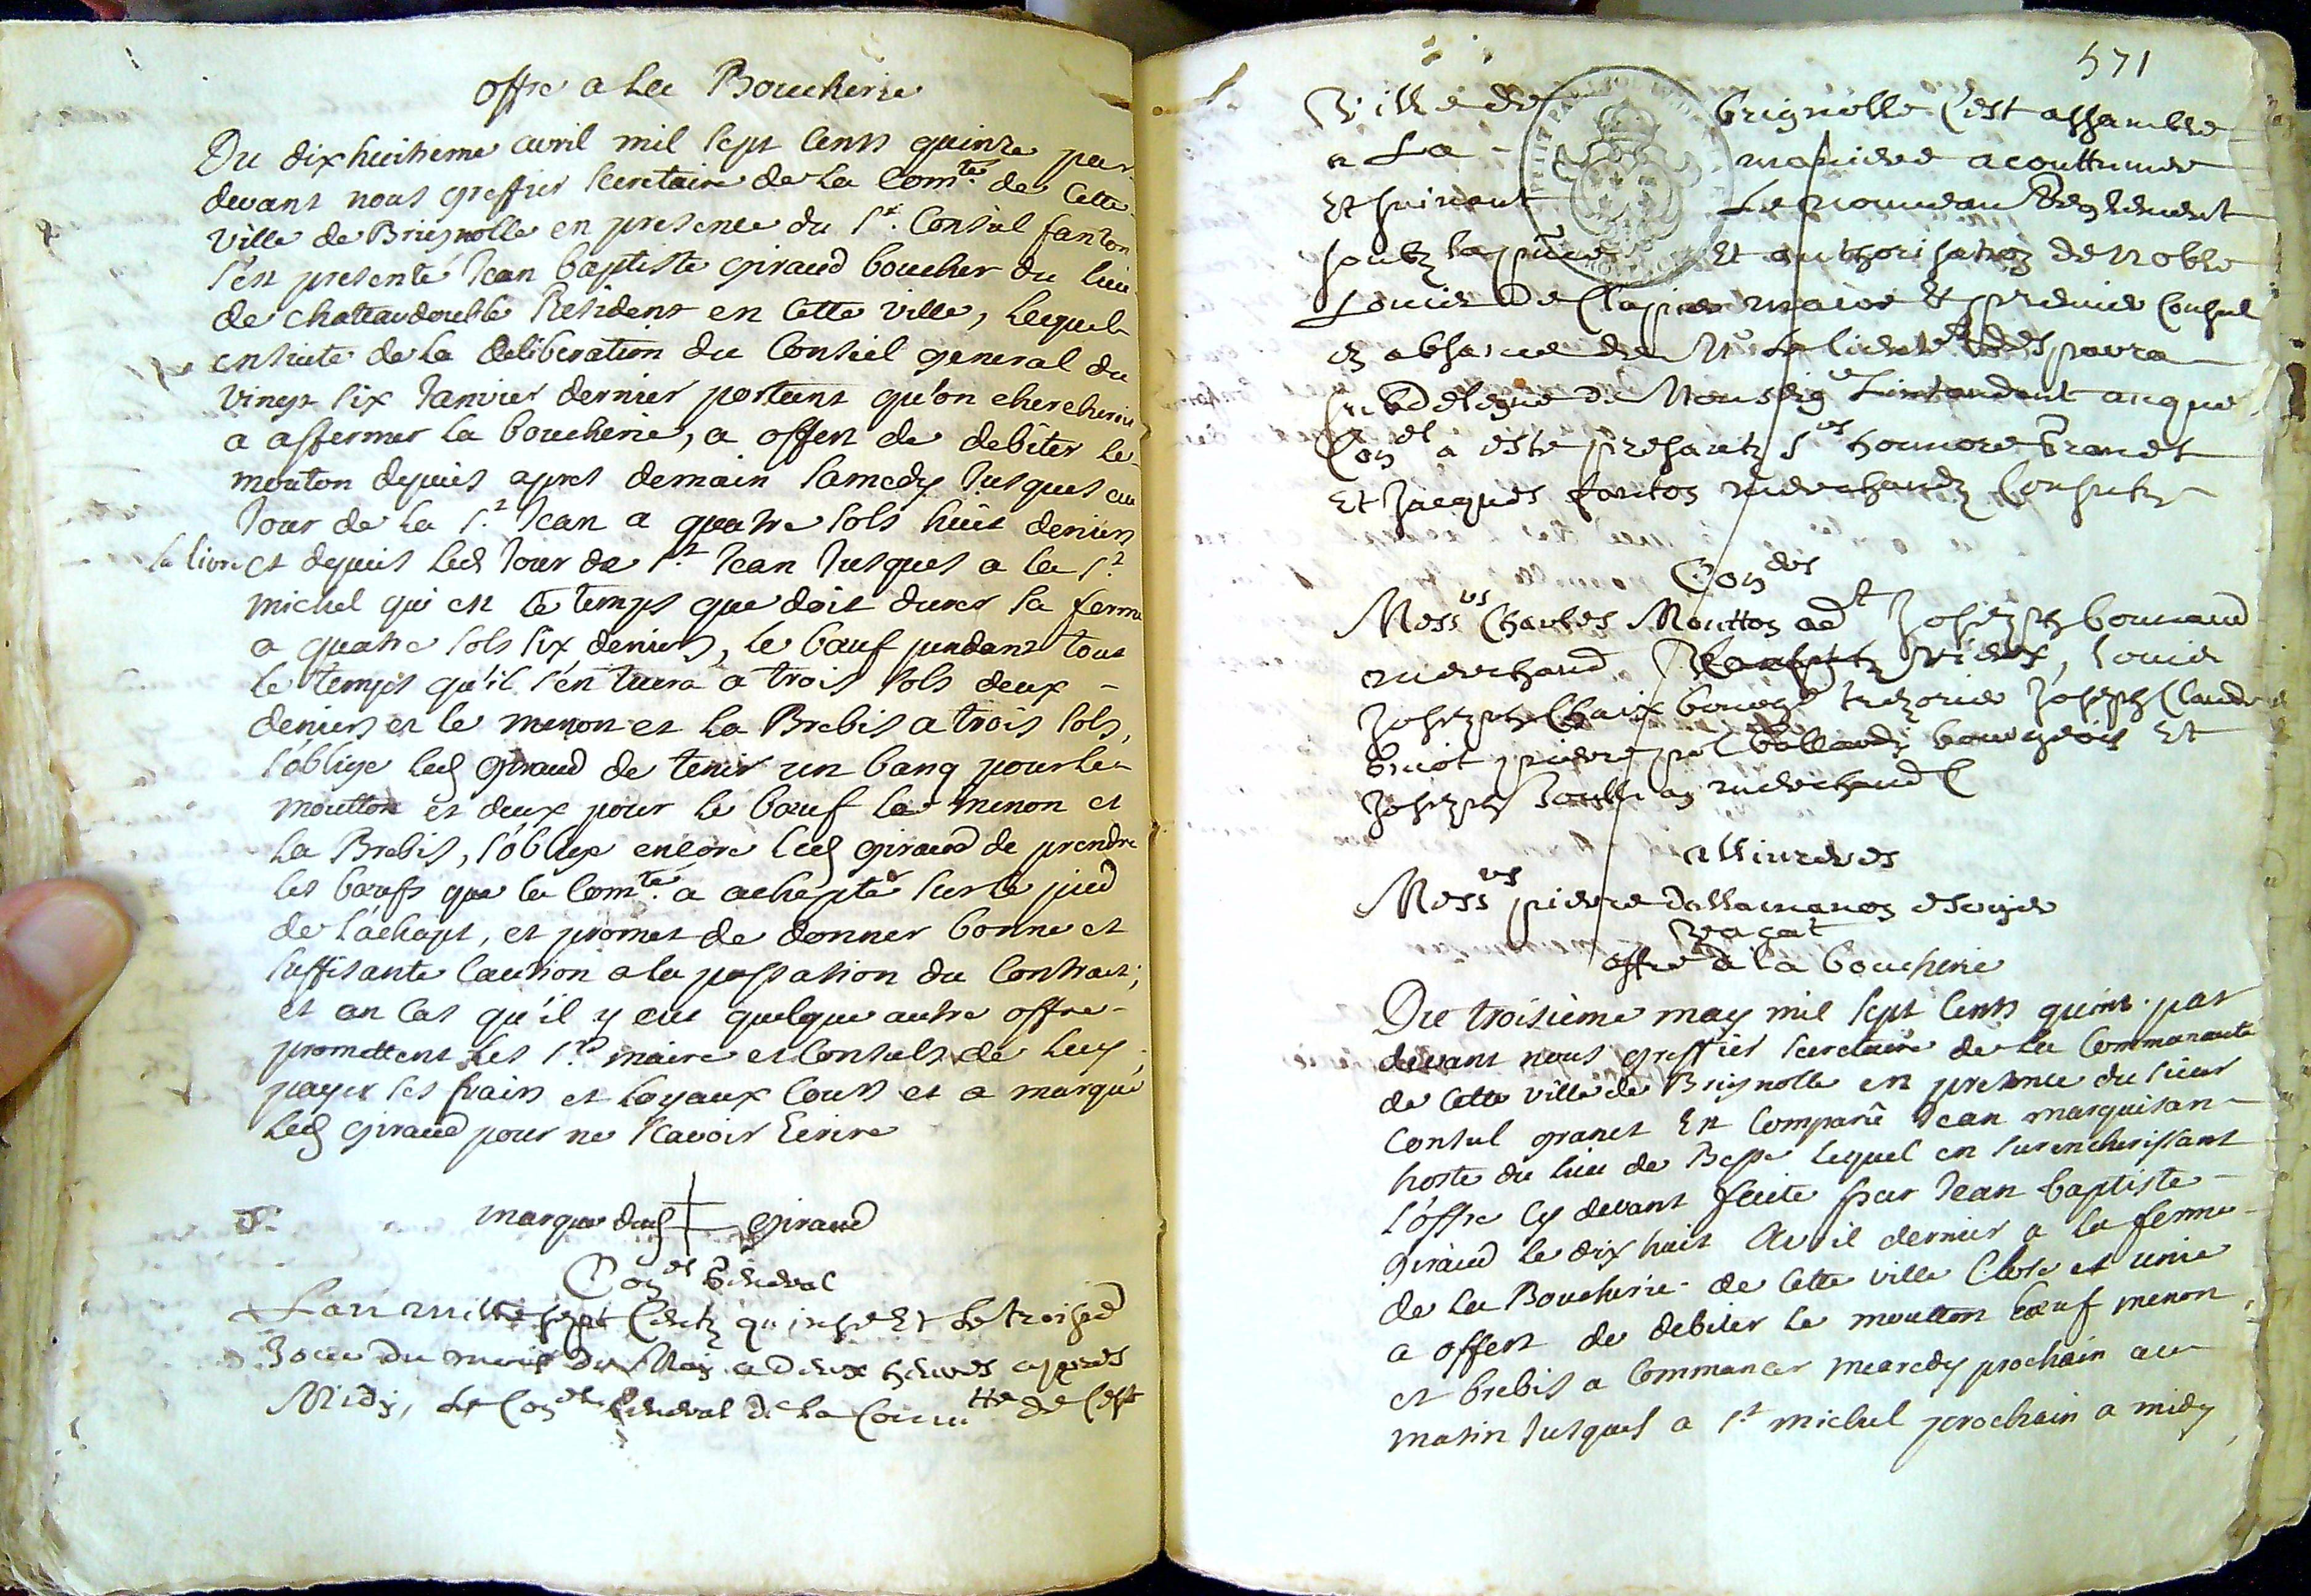 offre a la Boucherie
Du dix huitieme avril mil sept cents quinze par
devant nous greffier secretaire de la Com.té de cette
ville de Brignolle en presence du s.r Consul fanton
s'est presenté Jean baptiste giraud boucher du lieu
de chateaudouble Résident en cette ville, lequel
ensuite de la deliberation du Conseil general du
vingt six Janvier dernier portant qu'on chercheroit
a affermer la boucherie, a offert de debiter le
mouton depuis apres demain samedy Jusques au
Jour de la s.t Jean a quatre sols huit deniers
la livre et depuis led Jour de s.t Jean Jusques a la s.t
michel qui est le temps que doit durer la ferme
a quatre sols six deniers, le bœuf pendant tout
le temps qu'il s'en tuera a trois sols deux
deniers et le menon et la Brebis a trois sols,
s'oblige led giraud de tenir un banq pour le
moutton et deux pour le bœuf le menon et
la Brebis, s'oblige encore led giraud de prendre
les bœufs que la Com.té a achepté sur le pied
de l'achapt, et promet de donner bonne et
suffisante caution a la passation du Contract;
et en cas qu'il y eut quelque autre offre
promettent les s.rs maire et Consuls de luy
payer les frais et loyaux couts et a marqué
led giraud pour ne scavoir Ecrire
marque dud + giraud
Con.el General
Lan mille sept Centz quinse Et le troisie
Jour du mois de May a deux heures apres
Midy, le Con.el General de la Comm.tte de Ceste
571
Ville de Brignolle C'est assamble
a La maniere acouttumee
Et suivant Le nouveau Reglement
soubz la p.nce Et authorisation de Noble
Louis De Clapier maire & premier Consul
en absance de M.r
subdelegue de Monseig.r Lintandant auquel
Con.el a este presantz s.rs honnore Granet
Et Jacques fanton merchandz Consulz
Con.ers
Mess.rs Charles Moutton ad.t Joseph bouraud
merchand, vieux, Louis
Joseph Chaix bourg.s trezorier Joseph Claude
pierre pol bourgeois Et
Joseph merchand
allivreres
Mess.rs pierre dallamanon escuyer
Vacat
offre a la boucherie
Du troisieme may mil sept cents quinze par
devant nous greffier secretaire de la Communauté
de cette ville de Brignolle en presence du sieur
Consul granet Est Comparû Jean marquisan
hoste du lieu de Besse lequel en surencherissant
l'offre cy devant faite par Jean baptiste
giraud le dix huit Avril dernier a la ferme
de la Boucherie de cette ville Close et unie
a offert de debiter le moutton bœuf menon
et brebis a Commancer mearcdy prochain au
matin Jusques a s.t michel prochain a midy